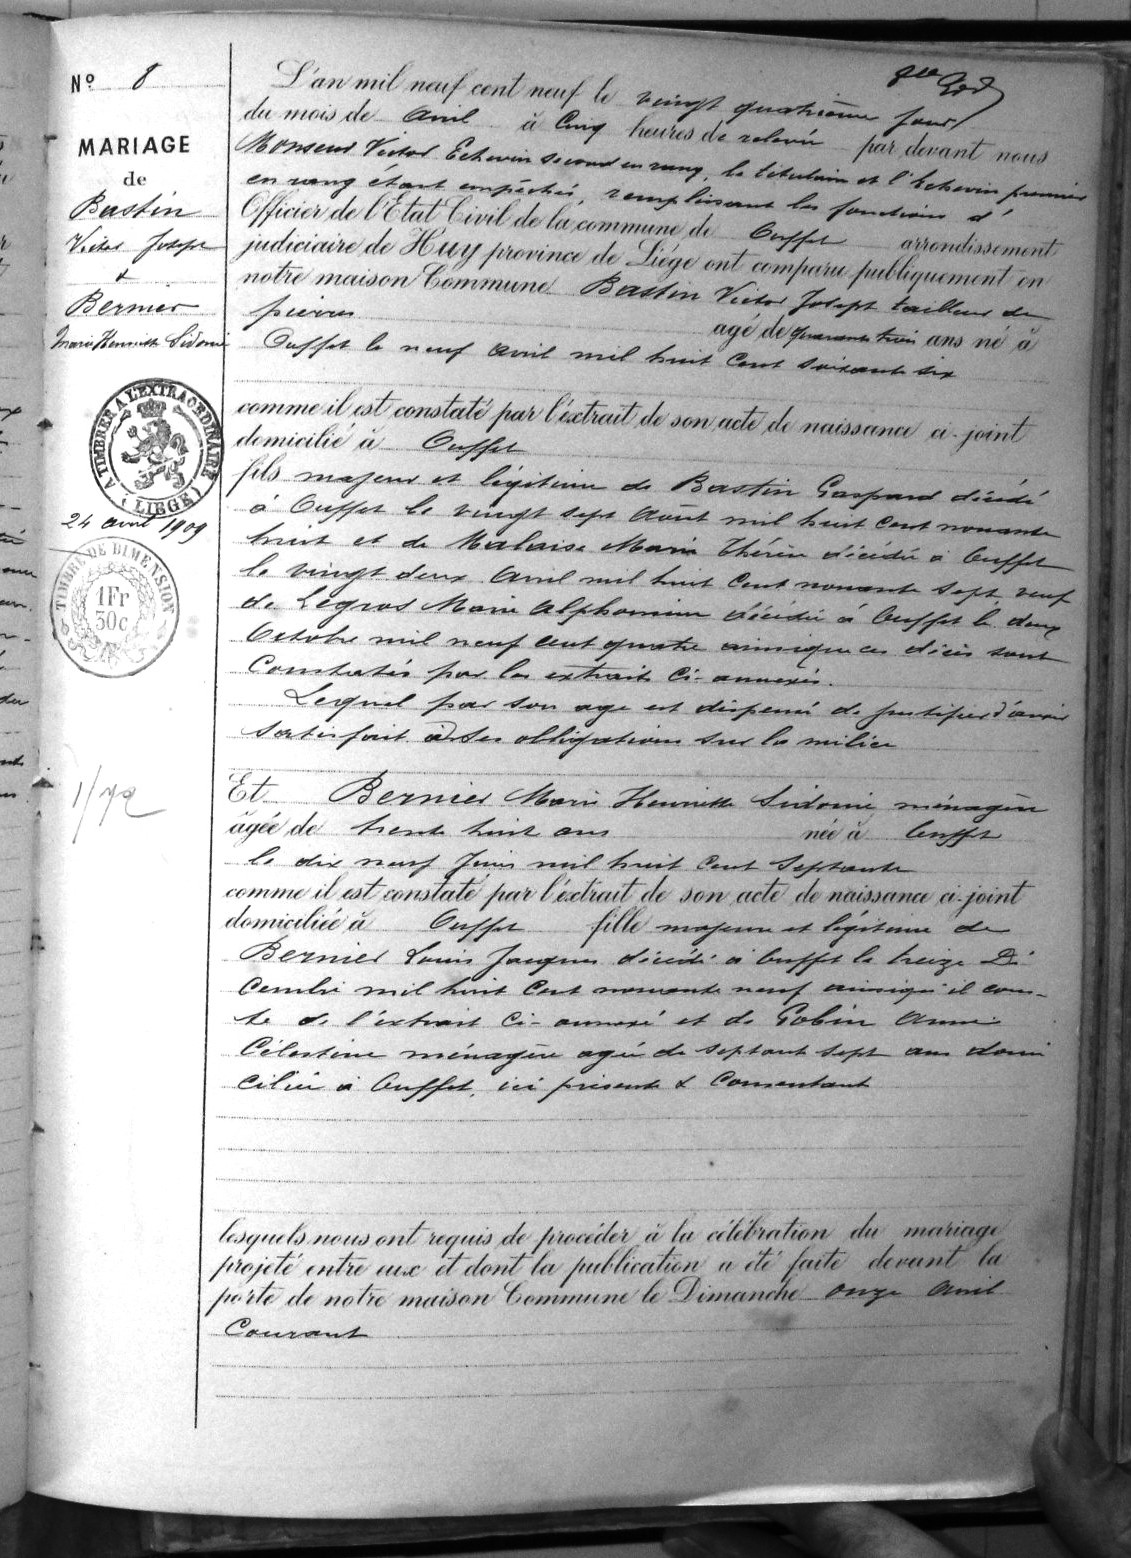 Nº 8
MARIAGE
de
Bastin
Victor Joseph
&
Bernier
Marie Henriette Sidonie
A TIMBRER A L'EXTRAORDINAIRE
( LIEGE )
24 avril 1909
TIMBRE DE DIMENSION
1Fr
30c
1/72
L'an mil neuf cent neuf le vingt quatrième jour
du mois de Avril à Cinq heures de relevée par devant nous
Monseur Victor Echevin second en rang, le titulaire et l'Echevin premier
en rang étant empêchés, remplissant les fonctions d'
Officier de l'Etat Civil de la commune de Ouffet arrondissement
judiciaire de Huy province de Liége ont comparu publiquement en
notre maison Commune Bastin Victor Joseph tailleur de
pierres
agé de quarante trois ans né à
Ouffet le neuf avril mil huit cent soixante six
comme il est constaté par l'éxtrait de son acte de naissance ci-joint
domicilié à Ouffet
fils majeur et légitime de Bastin Gaspard décédé
à Ouffet le vingt sept Août mil huit cent nonante
huit et de Malaise Marie Thérèse décédée à Ouffet
le vingt deux Avril mil huit cent nonante sept veuf
de Legros Marie Alphonsine décédée à Ouffet le deux
Octobre mil neuf cent quatre ainsi que ces décès sont
constatés par les extraits ci-annexés.
Lequel par son age est dispensé de justifier d'avoir
satisfait à ses obligations sur la milice
Et Bernier Marie Henriette Sidonie ménagère
âgée de trente huit ans née à Ouffet
le dix neuf Juin mil huit cent septante
comme il est constaté par l'éxtrait de son acte de naissance ci-joint
domiciliée à Ouffet fille majeure et légitime de
Bernier Louis Jacques décédé à Ouffet le treize Dé
cembre mil huit cent nonante neuf ainsiqu'il cons-
te de l'extrait ci-annexé et de Gobin Anne
Célestine ménagère agée de septante sept ans domi
ciliée à Ouffet, ici présente & consentant
lesquels nous ont requis de procéder à la célébration du mariage
projeté entre eux et dont la publication a été faite devant la
porte de notre maison Commune le Dimanche onze Avril
Courant